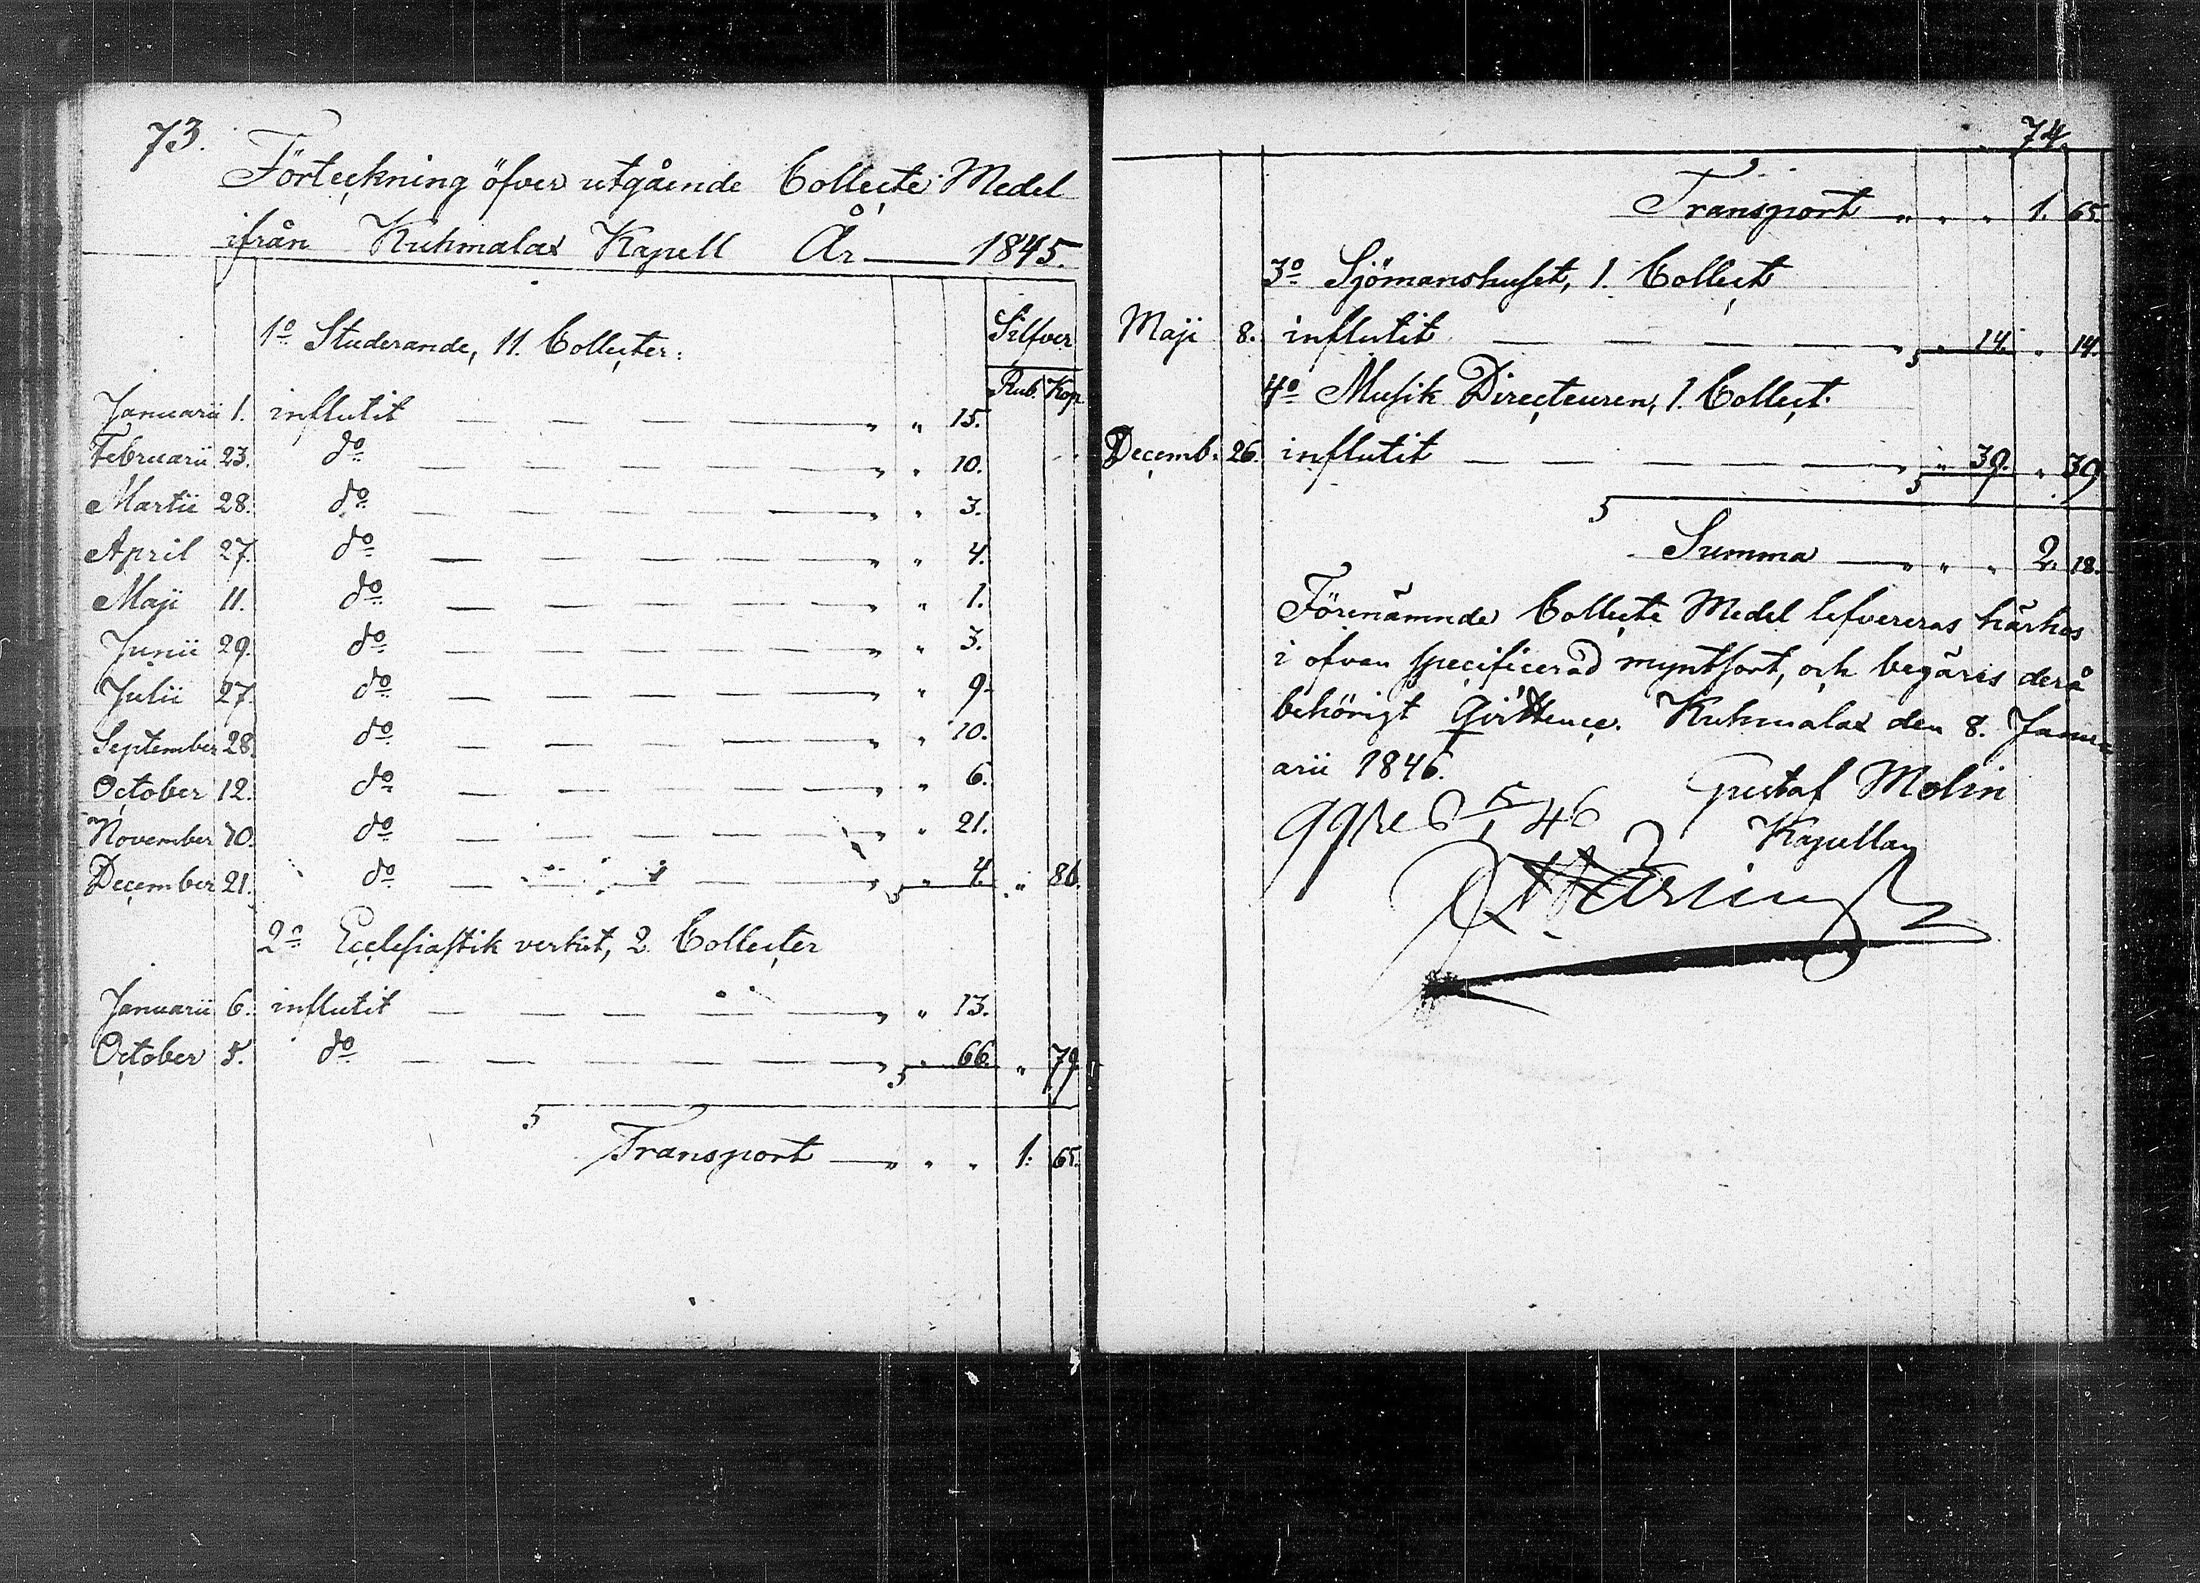 73.
Förteckning öfver utgående Collecte Medel
ifrån Kuhmalax Kapell År — 1845.
1o Studerande, 11. Collecter. Silfver
Rub. Kop.
Januarii 1. influtit — — — " " 15.
Februarii 23. do — — — " " 10.
Martii 28. do — — — " " 3.
April 27. do — — — " " 4.
Maji 11. do — — — " " 1.
Junii 29. do — — — " " 3.
Julii 27. do — — — " " 9.
September 28. do — — — " " 10.
October 12. do — — — " " 6.
November 10. do — — — " " 21.
December 21. do — — — " " 4. " 86.
2o Ecclesiastik verket, 2. Collecter
Januarii 6. influtit — — — " " 13.
October 5. do — — — " " 66. " 79.
Transport — " " " 1. 65.
74.
Transport — " " " 1. 65.
3o Sjömanshuset, 1. Collect
Maji 8. influtit — — — " " 14. " 14.
4o Musik Directeuren, 1. Collect.
Decemb. 26. influtit — — — " " 39. " 39
Summa — " " " 2. 18.
Förenämnde Collecte Medel lefvereras härhos
i ofvan specificerad myntsort, och begäres derå
behörigt Qvittence. Kuhmalax den 8. Janu=
arii 1846.
Gustaf Molin
46
Kapellan